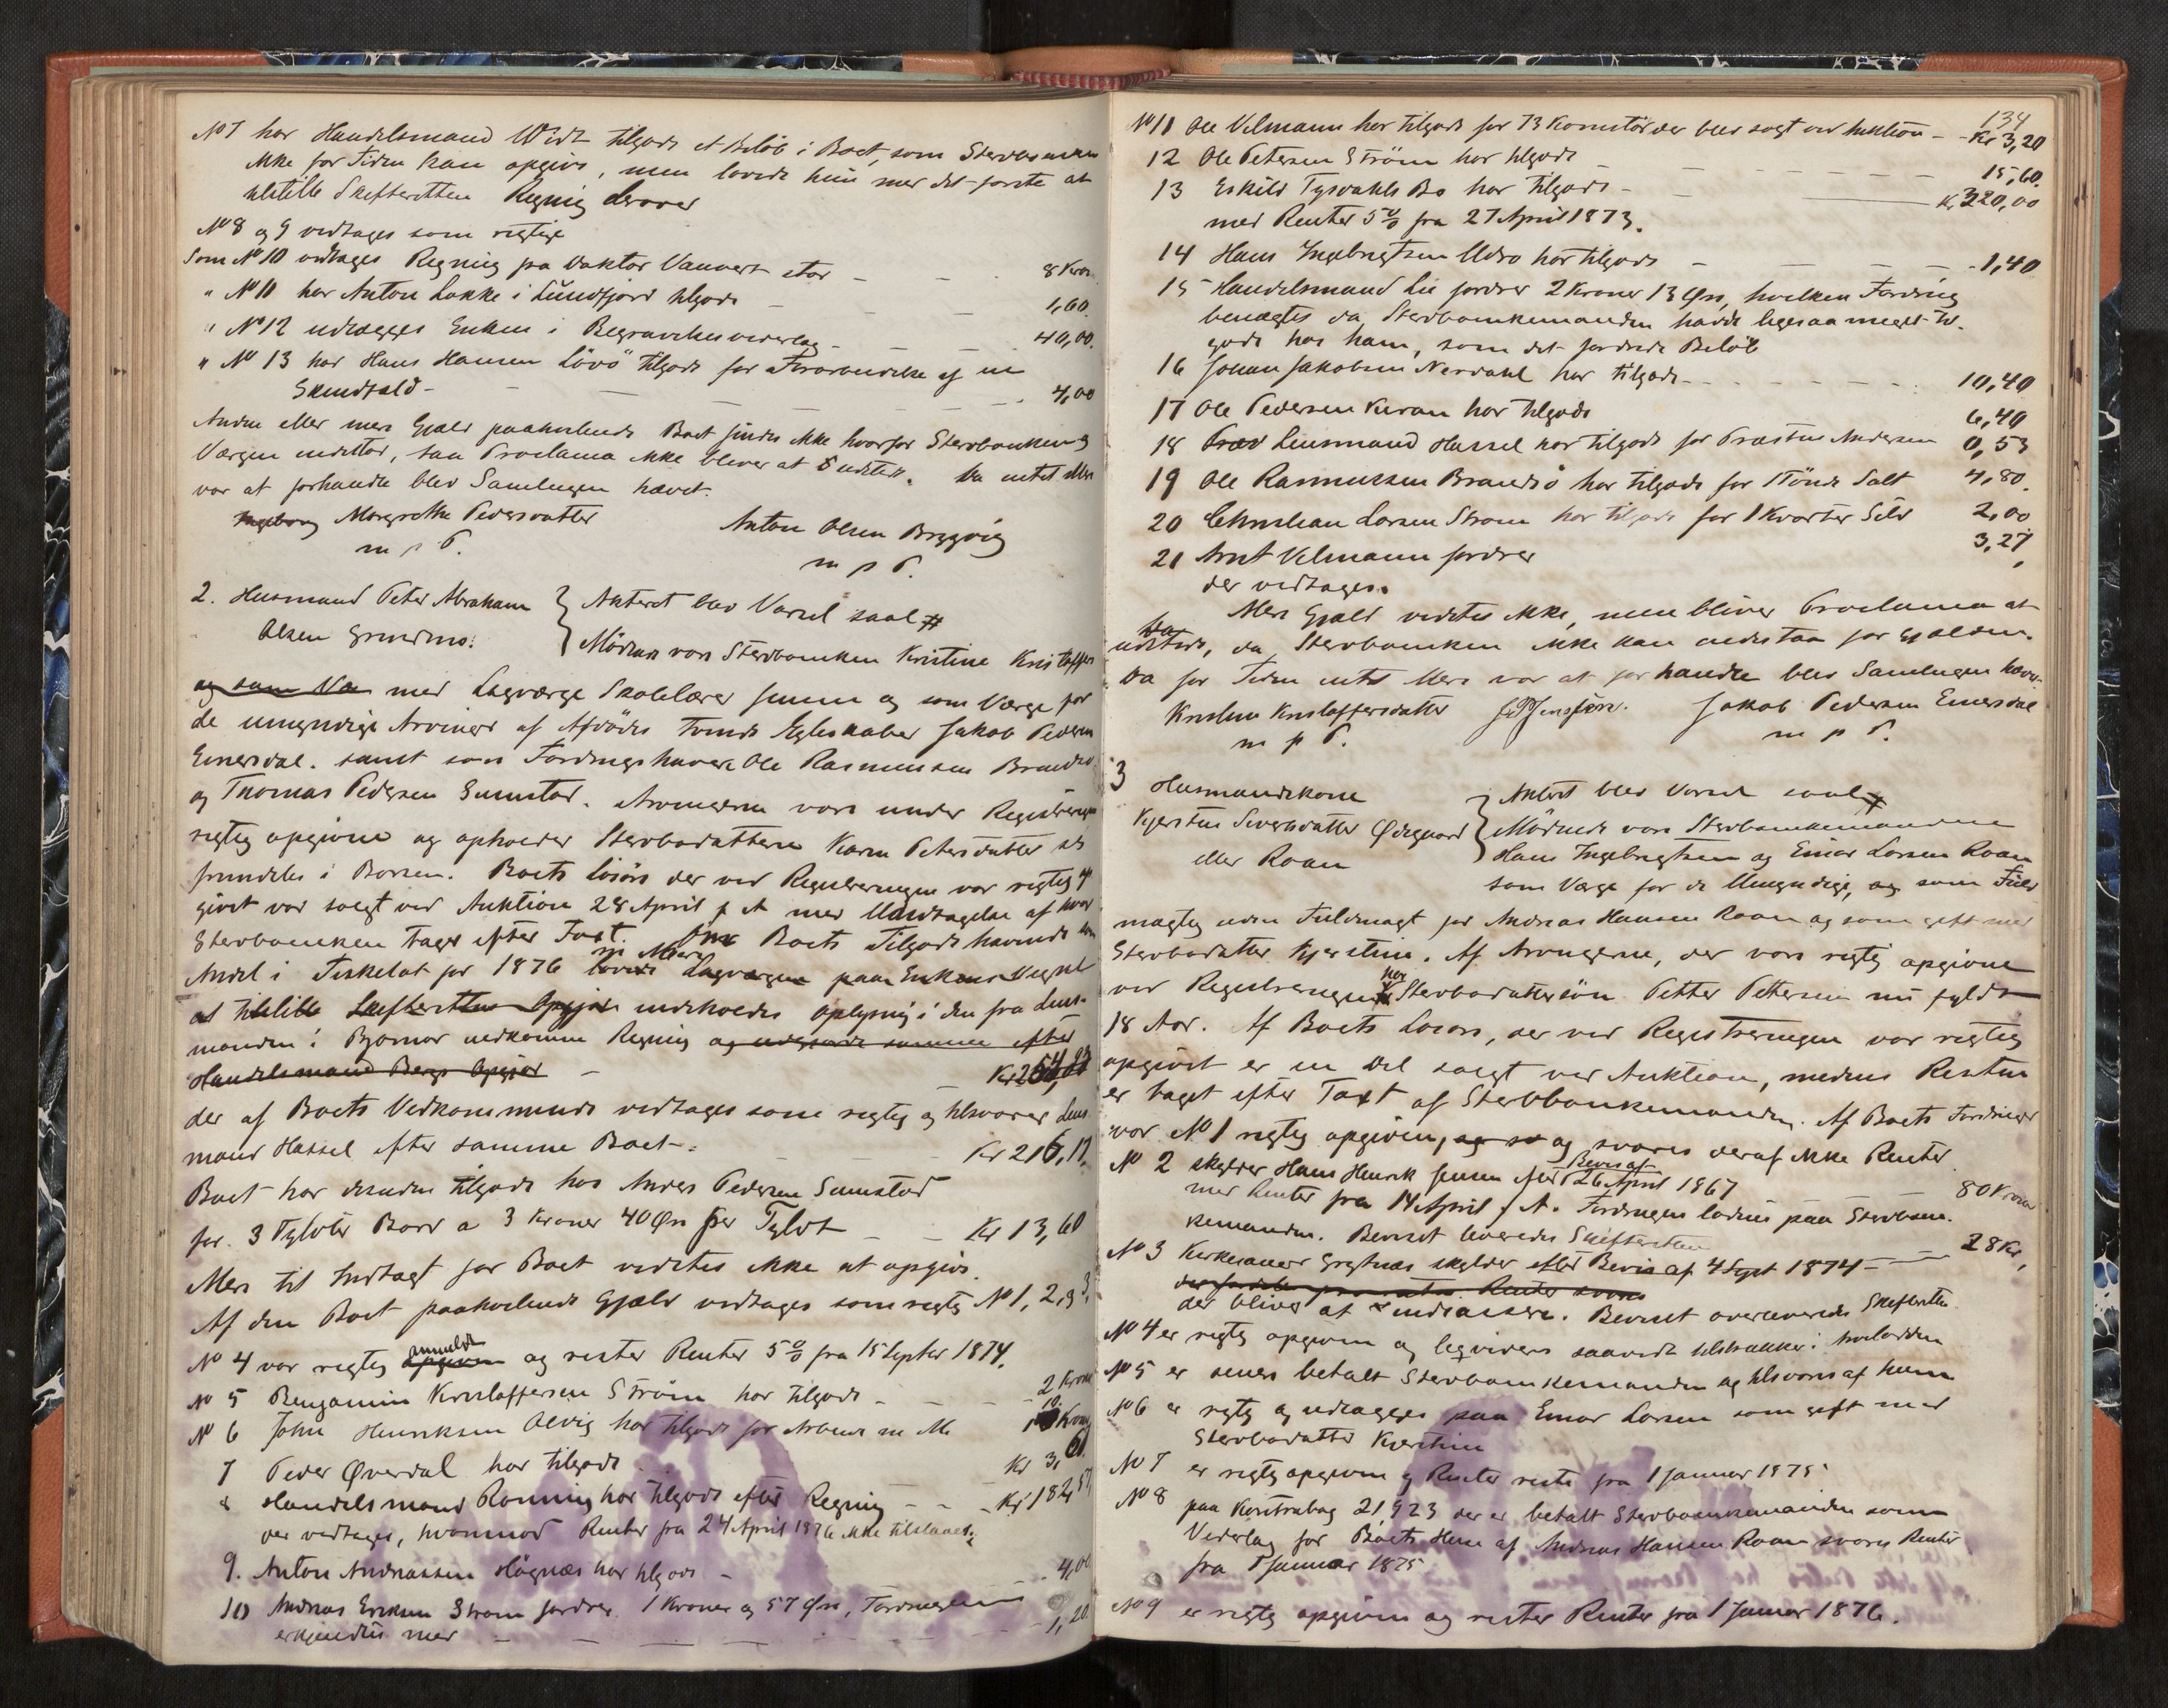 No 7 har Handelsmand Widt tilgode et Beløb i Boet, som Stervboenken
ikke for Tiden kan opgive, men lovede hun med det første at
tilstille Skifteretten Regnig derover
No 8 og 9 vedtages som rigtige
Som No 10 vedtages Regnig fra Doktor Vauvert stor - - 8 Kron
" No 11 har Anton Lakke i Lundfjord tilgode - - 1,60
" No 12 udlægges Enken i Begravelsesvederlag - - 40,00.
" No 13 har Hans Hansen Løvø tilgode for Forarbeidelse af en
Skindfeld - - - 4,00
Anden eller mere Gjæld paahvilende Boet findes ikke hvorfor Stervboenken og
Værgen indestaar, saa Proclama ikke bliver at udstede. Da intet mere
var at forhandle blev Samlingen hævet.
Ingeborg Margrethe Pedersdatter
m p P.
Anton Olsen Bryggvig
m p P.
2. Husmand Peter Abraham } Anteret blev Varsel saal #
Olsen Grindmo: } Mødende vare Stervboenken Kristine Kristoffers
og som Væ med Lagværge Skolelærer Jensen og som Værge for
de umyndige Arvinger af Afdødes trende Ægteskaber Jakob Pedersen
Einersdal. samt som Fordringshavere Ole Rasmussen Brandsø
og Thomas Pedersen Sumstad. Arvingerne vare under Registreringen
rigtig opgivne og opholder Stervbodatteren Karen Petersdatter sig
fremdeles i Borsen. Boets Løsøre der ved Registreringen var rigtig op
givet var solgt ved Auktion 28 April f A med Undtagelse af hvad
Stervboenken tager efter Taxt. Om Boets Tilgodehavende som
Andel i Fiskelot for 1876 lovede Lagværgen paa Enkens Vegne
at tilstille Skifteretten Opgjør indeholdes oplysning i den fra Lens-
manden i Bjørnør nedkomne Regnig og udgjorde samme efter
Handelsmand Bergs Opgjør - - Kr 254,
der af Boets Vedkommende vedtages som rigtig og tilsvarer Lens
mand Hassel efter samme Boet - - Kr 216,17.
Boet har desuden tilgode hos Anders Pedersen Sumstad
for 3 Tylvter Bord a 3 Kroner 40 Øre per Tylvt - - Kr 13,60
Mere til Indtægt for Boet vidstes ikke at opgive.
Af den Boet paahvilende Gjæld vedtages som rigtig No 1, 2, og 3.
No 4 var rigtig opgiven anmeldt og rester Renter 5% fra 15 Septbr 1874.
No 5 Benjamin Kristoffersen Strøm har tilgode - - 2 Kron
No 6 John Henriksen Olvig har tilgode for Arbeide m M. Kron
7 Peder Øverdal har tilgode Kr 3,61
8 Handelsmand Rønning har tilgode efter Regnig - - Kr 182,57
der vedtages, hvorimod Renter fra 24 April 1876 ikke tilstaaes.
9. Anton Andreassen Høgnæs har tilgode - - 4,00
10 Andreas Eriksen Strøm fordrer 1 Kroner og 57 Øre, Fordringen
erkjendtes med - - - 1,20
134
No 11 Ole Velmann har tilgode for 13 Kornstør der blev solgt ved Auktion - Kr 3,20
12 Ole Petersen Strøm har tilgode - - 15,60.
13 Eskild Tysdahls Bo har tilgode - Kr 320,00
med Renter 5% fra 27 April 1873.
14 Hans Ingebrigtsen Udro har tilgode - - 1,40
15 Handelsmand Lie fordrer 2 Kroner 13 Øre, hvilken Fordring
benægtes da Stervboenkemanden havde ligesaa meget til-
gode hos ham, som det fordrede Beløb
16 Johan Jakobsen Nerdahl har tilgode - - 10,40
17 Ole Pedersen Kiran har tilgode 6,40
18 Lensmand Hassel har tilgode for Præsten Andersen 0,53
19 Ole Rasmussen Brandsø har tilgode for 1 Tønde Salt 4,80
20 Christian Larsen Strøm har tilgode for 1 Kvarter Sild 2,00
21 Arnt Velmann fordrer 3,27
der vedtages.
Mere Gjæld vidstes ikke, men bliver Proclama at
udstede, da Stervboenken ikke kan indestaa for Gjælden.
Da for Tiden intet Mere var at forhandle blev Samlingen hævet.
Kristine Kristoffersdatter
m p P.
Jakob Pedersen Einersdal
m p P.
3 Husmandskone } Anteret blev Varsel saal #
Kjerstine Siversdatter Ødegaard } Mødende vare Stervboenkemanden
eller Roan Hans Ingebrigtsen og Einar Larsen Roan
som Værge for de Umyndige, og som Fuld
mægtig uden Fuldmagt for Andreas Hansen Roan og som gift med
Stervbodatter Kjerstine. Af Arvingerne, der vare rigtig opgivne
ved Registreringen har Stervbodattersøn Petter Pettersen nu fyldt
18 Aar. Af Boets Løsøre, der ved Registreringen var rigtig
opgivet er en Del solgt ved Auktion, medens Resten
er taget efter Taxt af Stervboenkemanden. Af Boets Fordringer
var No 1 rigtig opgiven, og svares deraf ikke Renter.
No 2 skylder Hans Henrik Jensen efter Bevis af 26 April 1867 80 Kroner
med Renter fra 14 April f A. Fordringen lødende paa Stervboen-
kemanden. Beviset leveredes Skifteretten
No 3 Kirkesanger Gregtnæs skylder efter Bevis af 4 Sept 1874 - - 28 Kr,
der bliver at indcassere. Beviset overleveredes Skifteretten
No 4 er rigtig opgiven og legvideres saavidt tilstrækker i Avelodden
No 5 er senere betalt Stervboenkemanden og tilsvares af ham
No 6 er rigtig og udlægges paa Einar Larsen som gift med
Stervbodatter Kjerstine
No 7 er rigtig opgiven og Renter reste fra 1 Januar 1875
No 8 paa Kontrabog 21,923 der er betalt Stervboenkemanden som
Vederlag for Boets Huse af Andreas Hansen Roan svares Renter
fra 1 Januar 1875
No 9 er rigtig opgiven og rester Renter fra 1 Januar 1876.